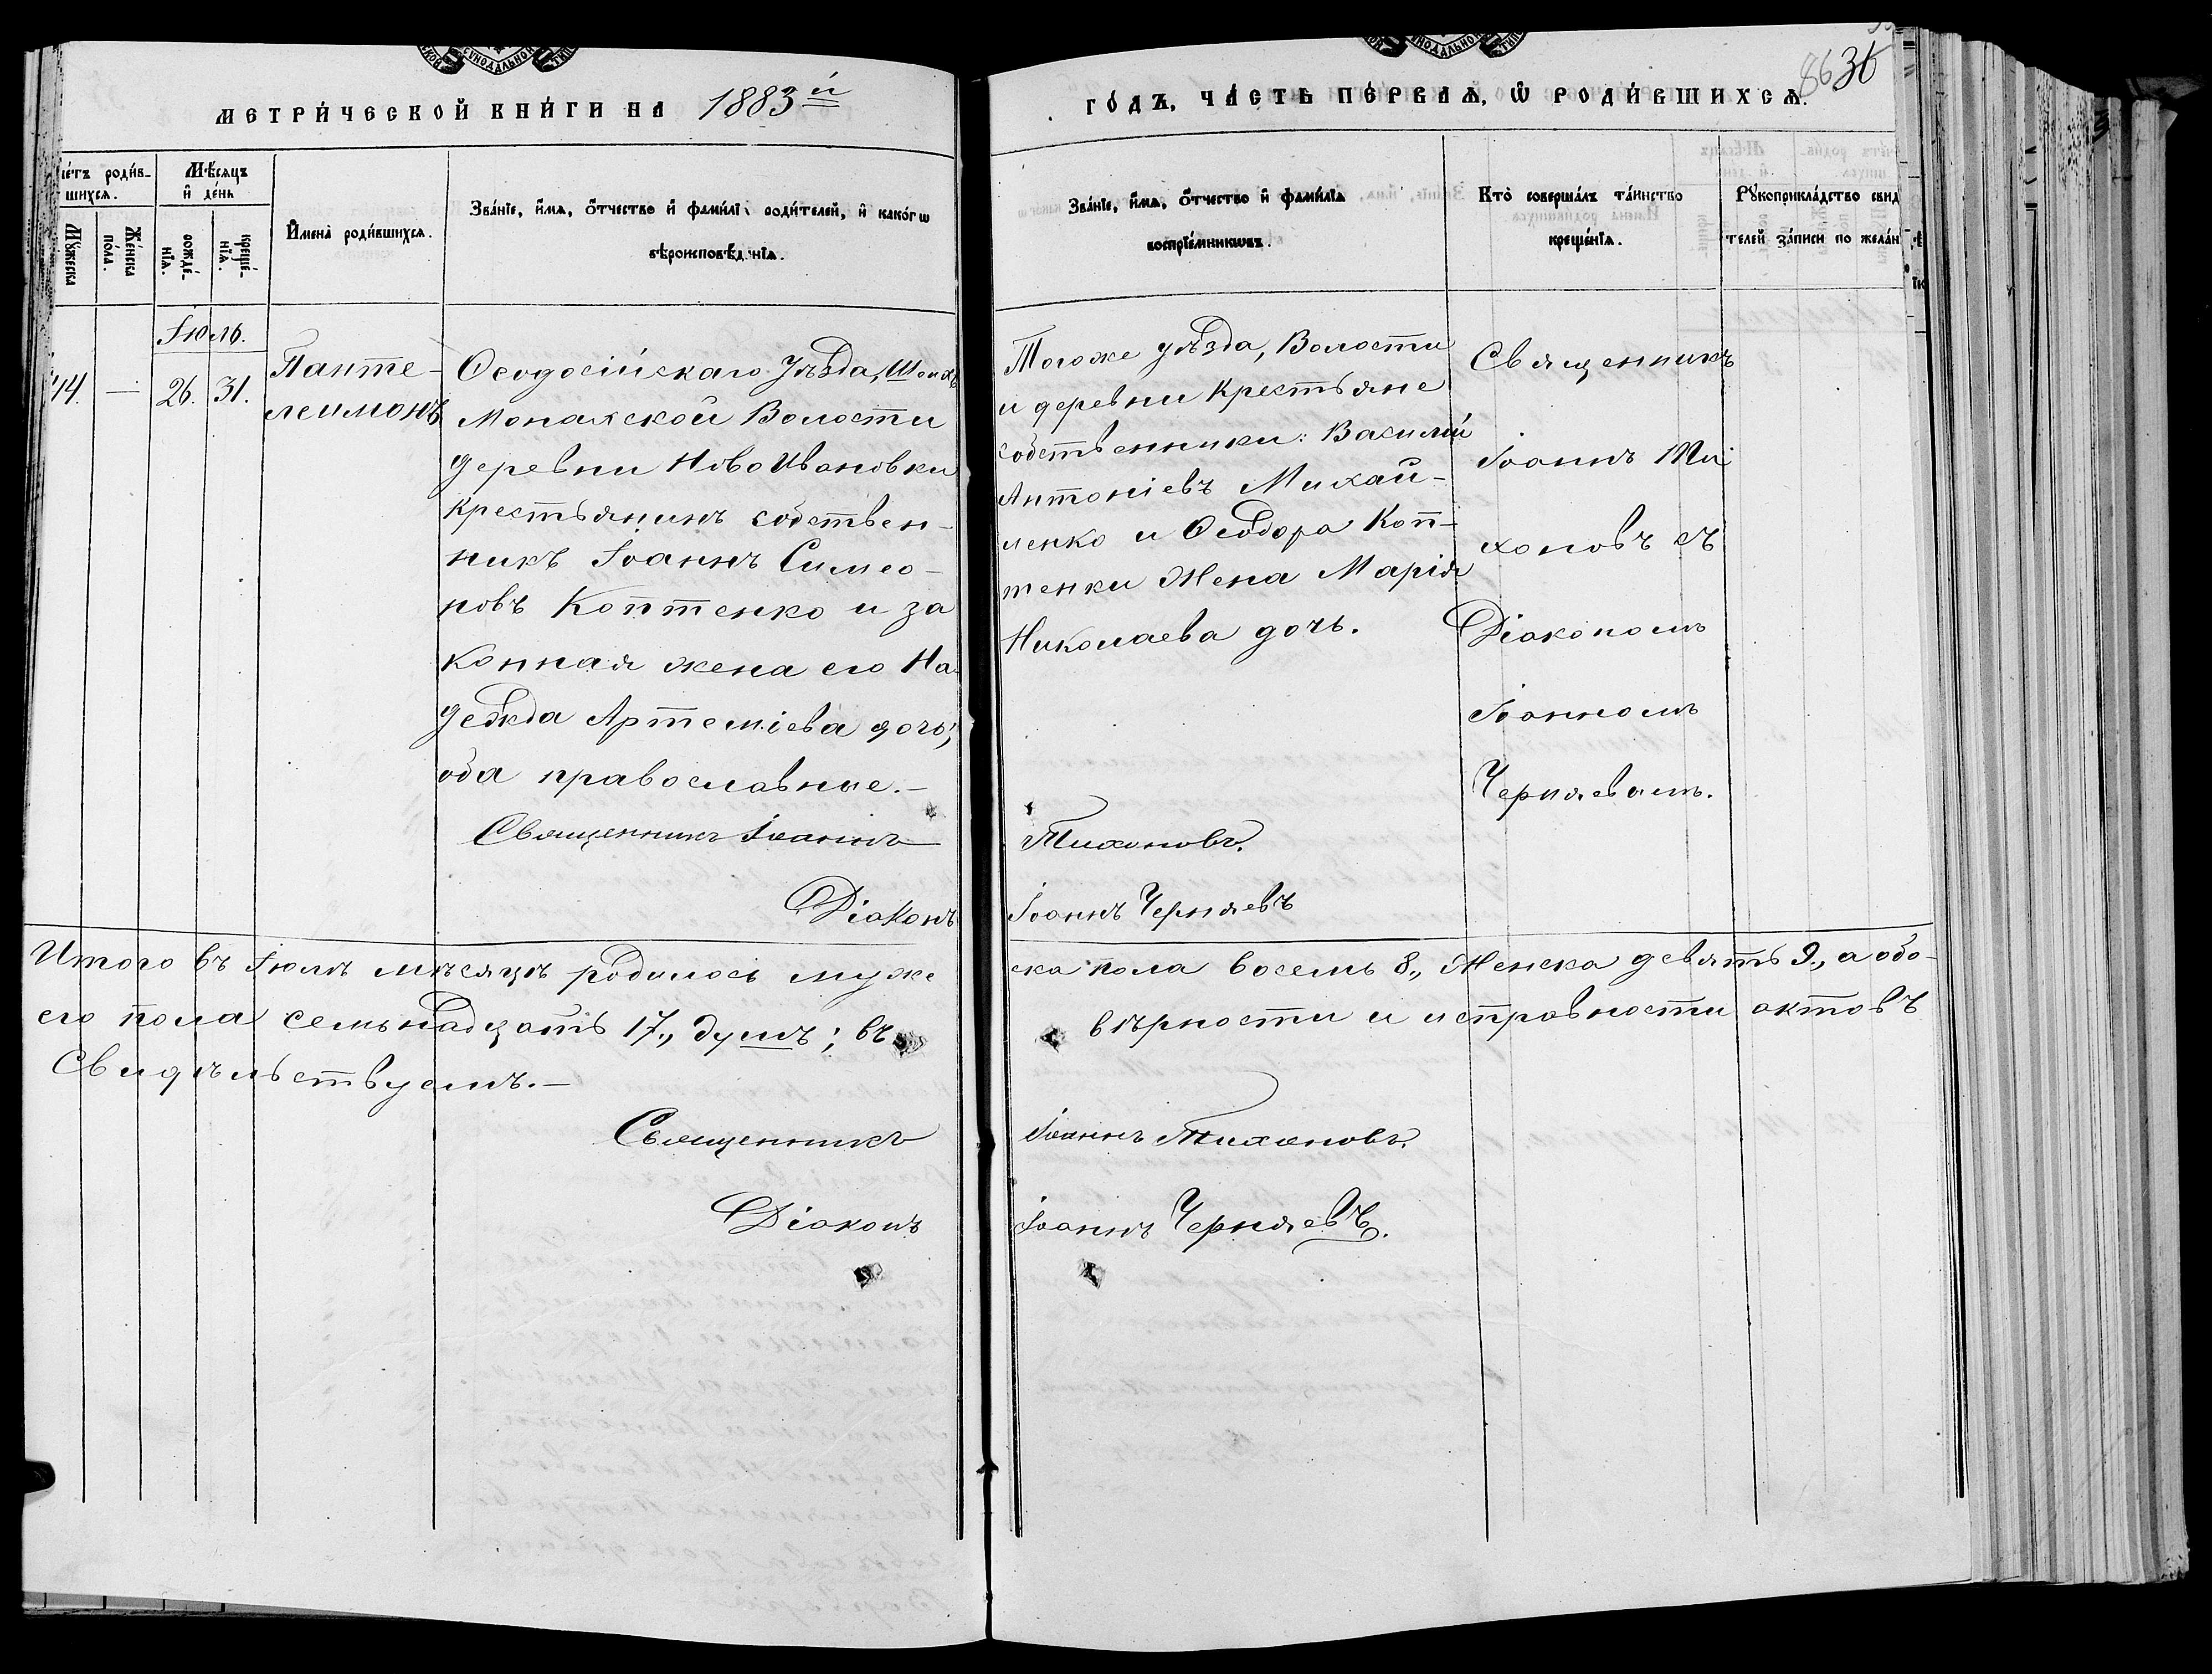 МЕТРИЧЕСКОЙ КНИГИ НА 1883й
ГОДЪ, ЧАСТЬ ПЕРВАЯ, Ѡ РОДИВШИХСЯ.
8636
родив-
шихся.
Мѣсяцъ
и день
Мужеска
Женска
пола.
рожде-
нїя.
креще-
нїя.
Имена родившихся.
Званїе, имя, отчество и фамилї родителей, и какогѡ
вѣроисповѣд нїя.
Званїе, имя, отчество и фамилїя
воспрїемниковъ.
Кто совершалъ таинство
крещенїя.
Рукоприкладство свид
телей записи по желан
Іюль.
44. — 26. 31.
Панте-
леимонъ
Ѳеодосійскаго Уѣзда, Шейхъ
Монахской Волости
деревни НовоИвановки
крестьянинъ собствен-
никъ Іоаннъ Симео-
новъ Коптенко и за
конная жена его На-
дежда Артеміева дочь,
оба православные.—
Тогоже уѣзда, Волости
и деревни крестьяне
собственники: Василій
Антоніевъ Михай-
ленко и Ѳеодора Коп-
тенки жена Марія
Николаева дочь.
Священникъ
Іоаннъ Ти-
хоновъ съ
Діакономъ
Іоанномъ
Черняевымъ.
Священникъ Іоаннъ Тихоновъ.
Діаконъ Іоаннъ Черняевъ
Итого въ Іюлѣ мѣсяцѣ родилось муже ска пола восемь 8., Женска девять 9., а обо-
его пола семьнадцать 17., душъ; въ вѣрности и исправности актовъ
Свидѣтельствуемъ.—
Священникъ Іоаннъ Тихоновъ.
Діаконъ Іоаннъ Черняевъ.